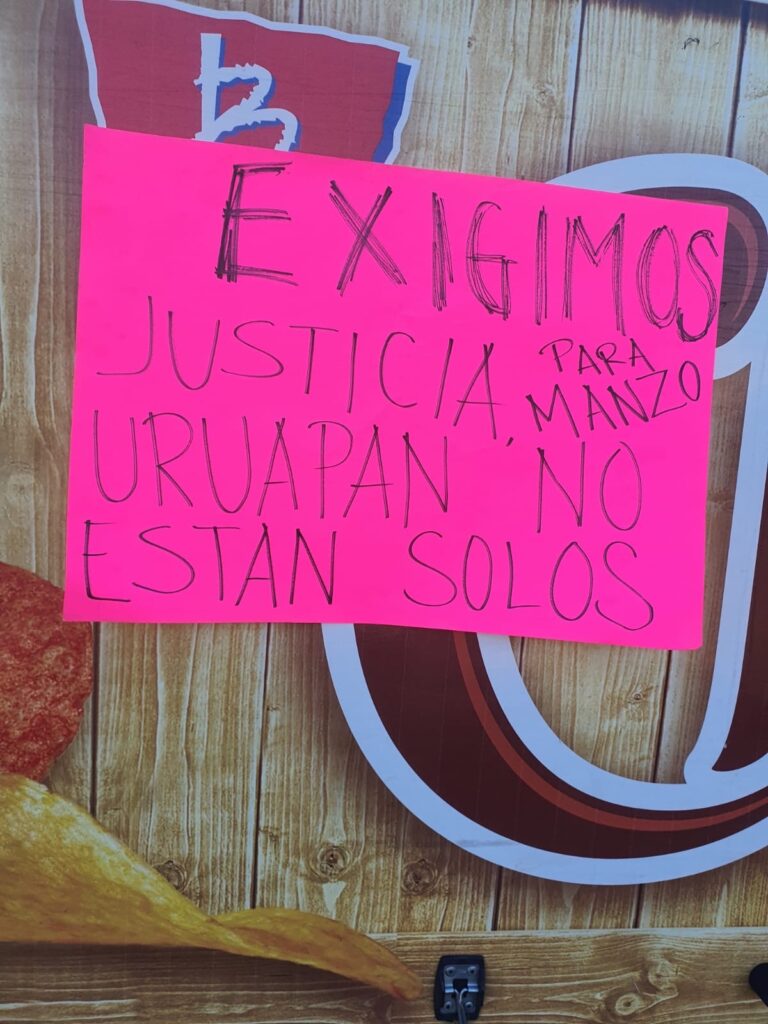 B
EXIGIMOS
JUSTICIA, PARA MANZO
URUAPAN NO
ESTÁN SOLOS